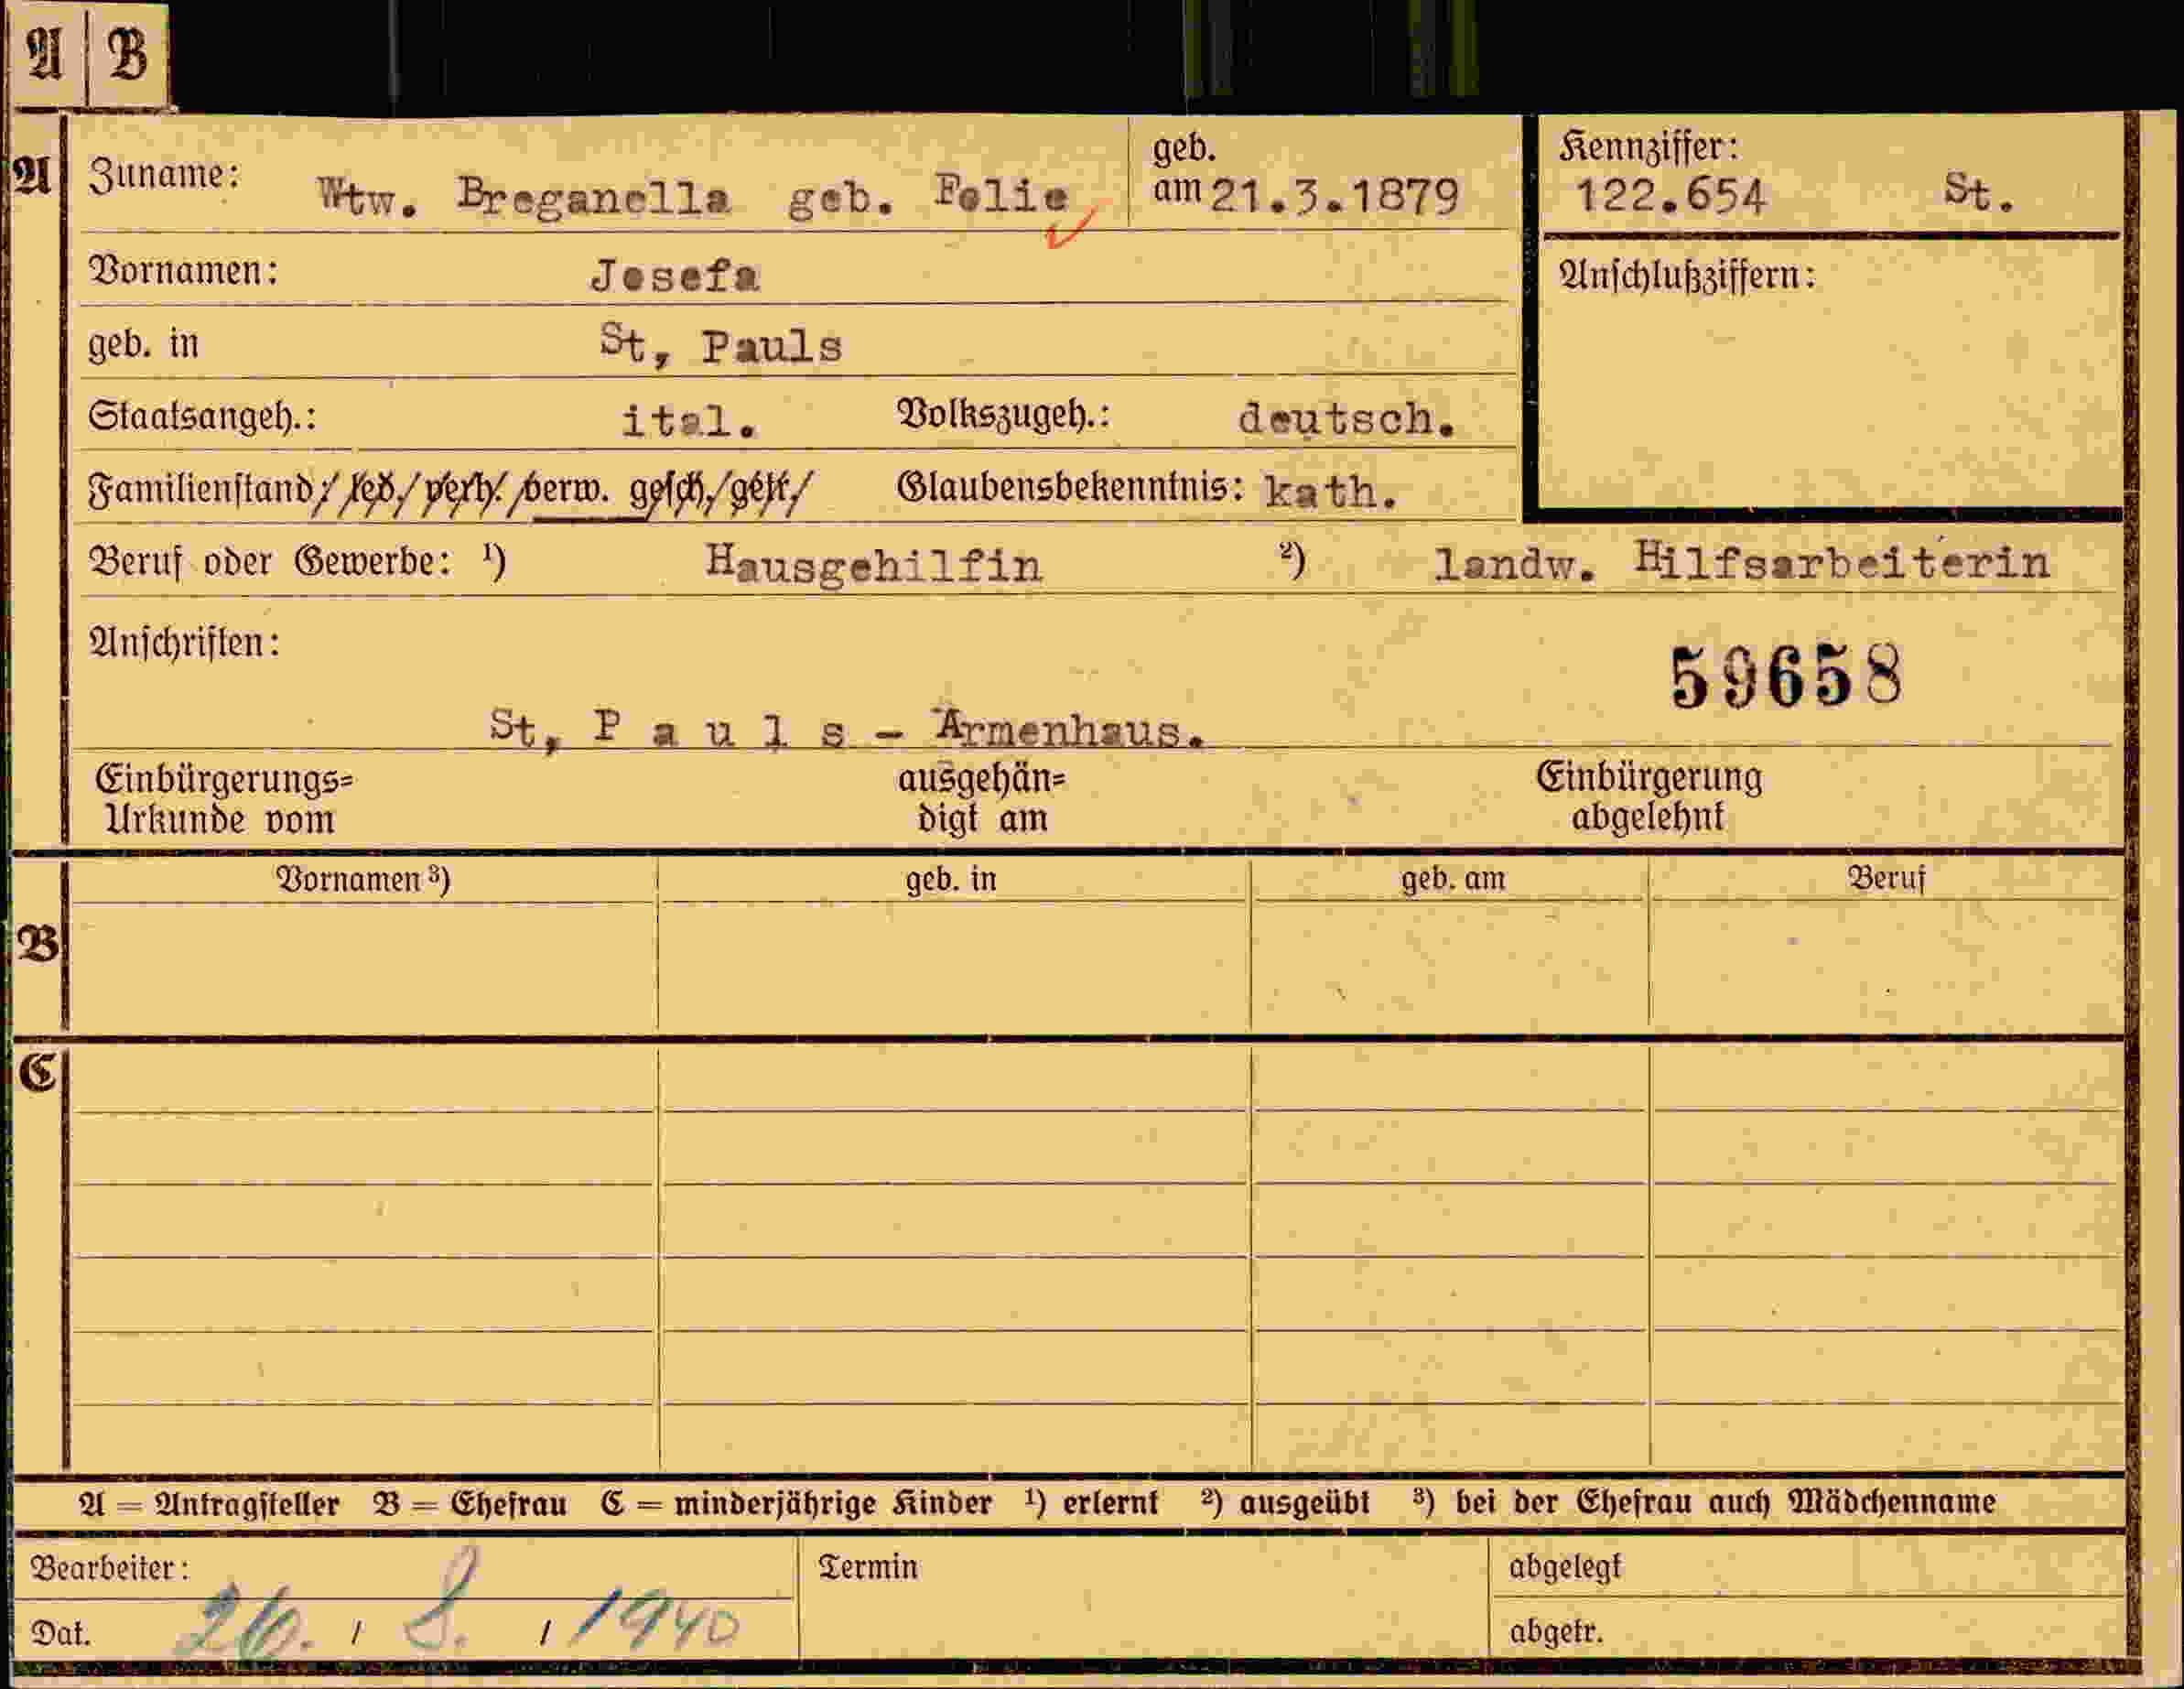 A B
A Zuname: Wtw. Breganella geb. Folie geb. am 21.3.1879 Kennziffer: 122.654 St.
Vornamen: Josefa Anschlußziffern:
geb. in St, Pauls
Staatsangeh.: ital. Volkszugeh.: deutsch.
Familienstand: led. verh. verw. gesch. getr. Glaubensbekenntnis: kath.
Beruf oder Gewerbe: ¹) Hausgehilfin ²) landw. Hilfsarbeiterin
Anschriften:
59658
St, P a u l s - Armenhaus.
Einbürgerungs= ausgehän= Einbürgerung
Urkunde vom digt am abgelehnt
Vornamen ³) geb. in geb. am Beruf
B
C
A = Antragsteller B = Ehefrau C = minderjährige Kinder ¹) erlernt ²) ausgeübt ³) bei der Ehefrau auch Mädchenname
Bearbeiter: Termin abgelegt
Dat. 26. / 8. / 1940 abgetr.